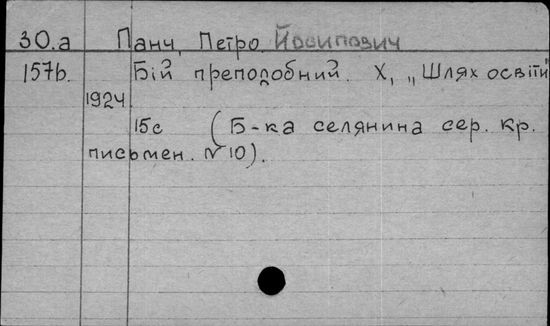 30.а Панч, Петро Йосипович
157b. Бій преподобний. Х, „Шлях освіти"
1924
15с (Б-ка селянина сер. кр.
письмен. №10).